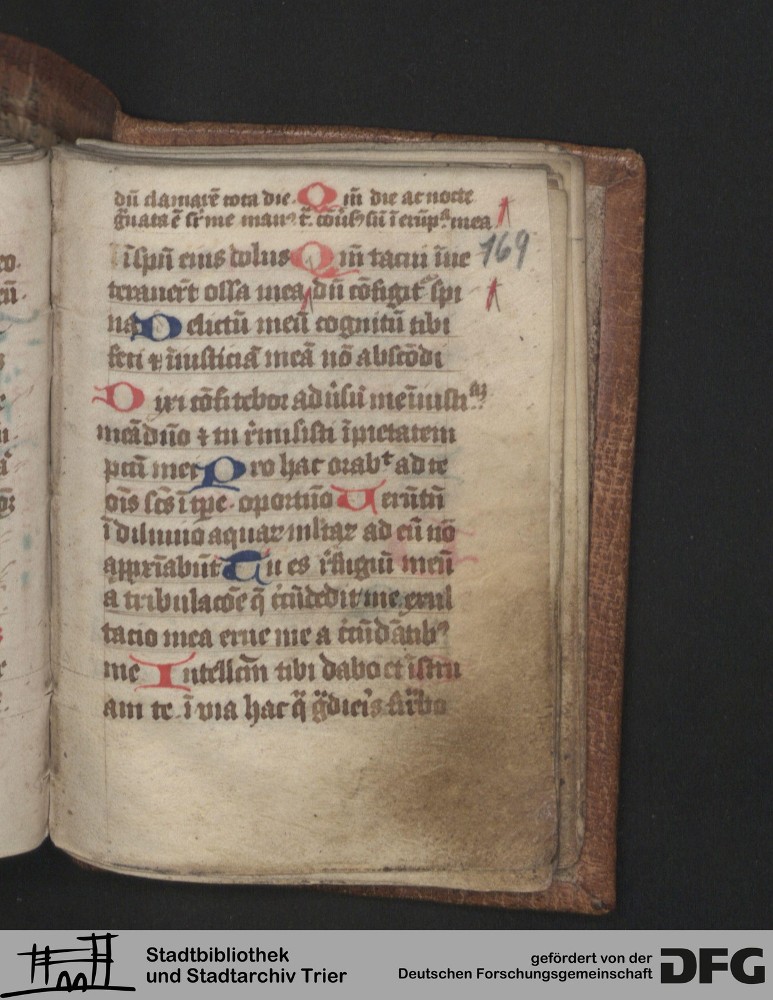 dū clamarē tota die Qm̄ die ac nocte
g̃uata ē sr̄ me man⁹ t̄. cōūs⁹ sū ī erūp. mea
ī spū eius dolus Qm̄ tacui īue
terauer̄t ossa mea dū cōfigit᷑ spi
na Delictū meū cognitū tibi
feci ⁊ īiusticiā meā nō abscōdi
Dixi cōfitebor aduʼsū me īiusti
meā dn̄o ⁊ tu rʼmisisti īpietatem
pctī mei Pro hac orabᵗ ad te
oīs scs̄ ī tp̄e oportuno Uerūtn̄
ī diluuio aquaꝝ mltaꝝ ad eū nō
apꝓxīabūt Tu es rʼfugiū meū
a tribulacōe q̄ cʼcūdedit me exul
tacio mea erue me a cʼcūdātib⁹
me Intellcm̄ tibi dabo et īstru
am te ī uia hac q̄ g̃dieris firʼbo
co
169
Stadtbibliothek
und Stadtarchiv Trier
gefördert von der
Deutschen Forschungsgemeinschaft
DFG